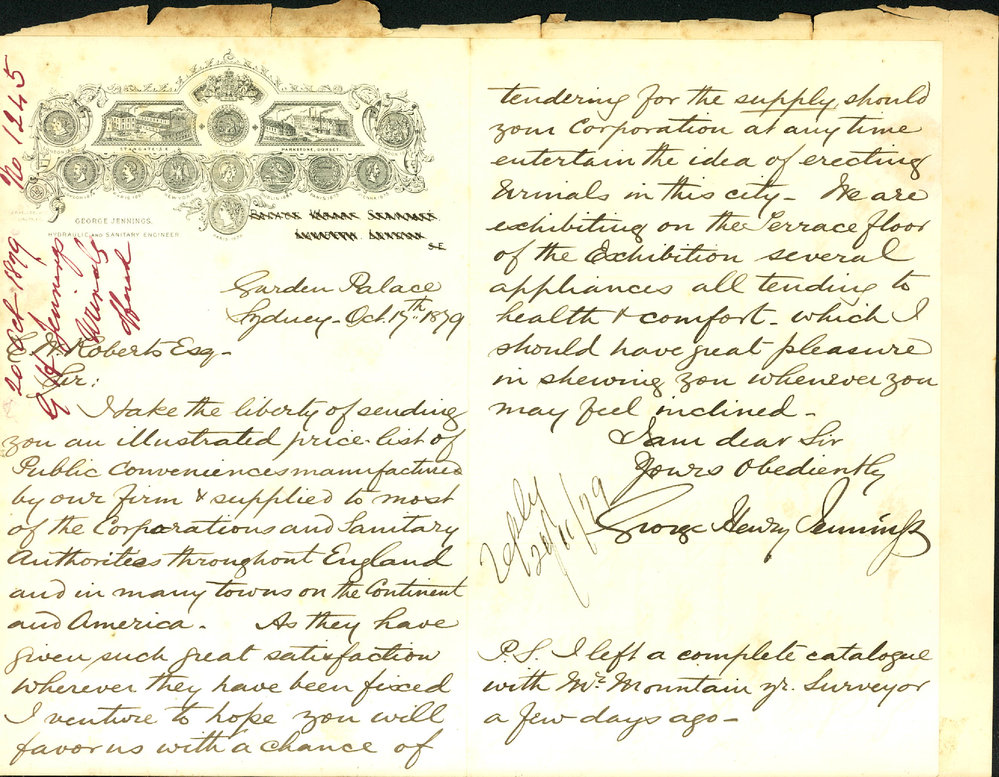 No 1245
20 Oct 1879
G H Jennings
Urinals
offered
STANGATE, S.E.
PARKSTONE, DORSET.
GEORGE JENNINGS.
HYDRAULIC AND SANITARY ENGINEER
S.E.
Garden Palace
Sydney - Oct. 17th 1879
Roberts Esq -
Sir:
I take the liberty of sending
you an illustrated price list of
Public Conveniences manufactured
by our firm & supplied to most
of the Corporations and Sanitary
Authorities throughout England
and in many towns on the Continent
and America - As they have
given such great satisfaction
wherever they have been fixed
I venture to hope you will
favor us with a chance of
tendering for the supply, should
your Corporation at any time
entertain the idea of erecting
Urinals in this city - We are
exhibiting on the Terrace floor
of the Exhibition several
appliances all tending to
health & comfort - which I
should have great pleasure
in shewing you whenever you
may feel inclined -
I am dear Sir
Yours Obediently
George Henry Jennings
reply
29/11/79
P.S. I left a complete catalogue
with Mr. Mountain yr. Surveyor
a few days ago -